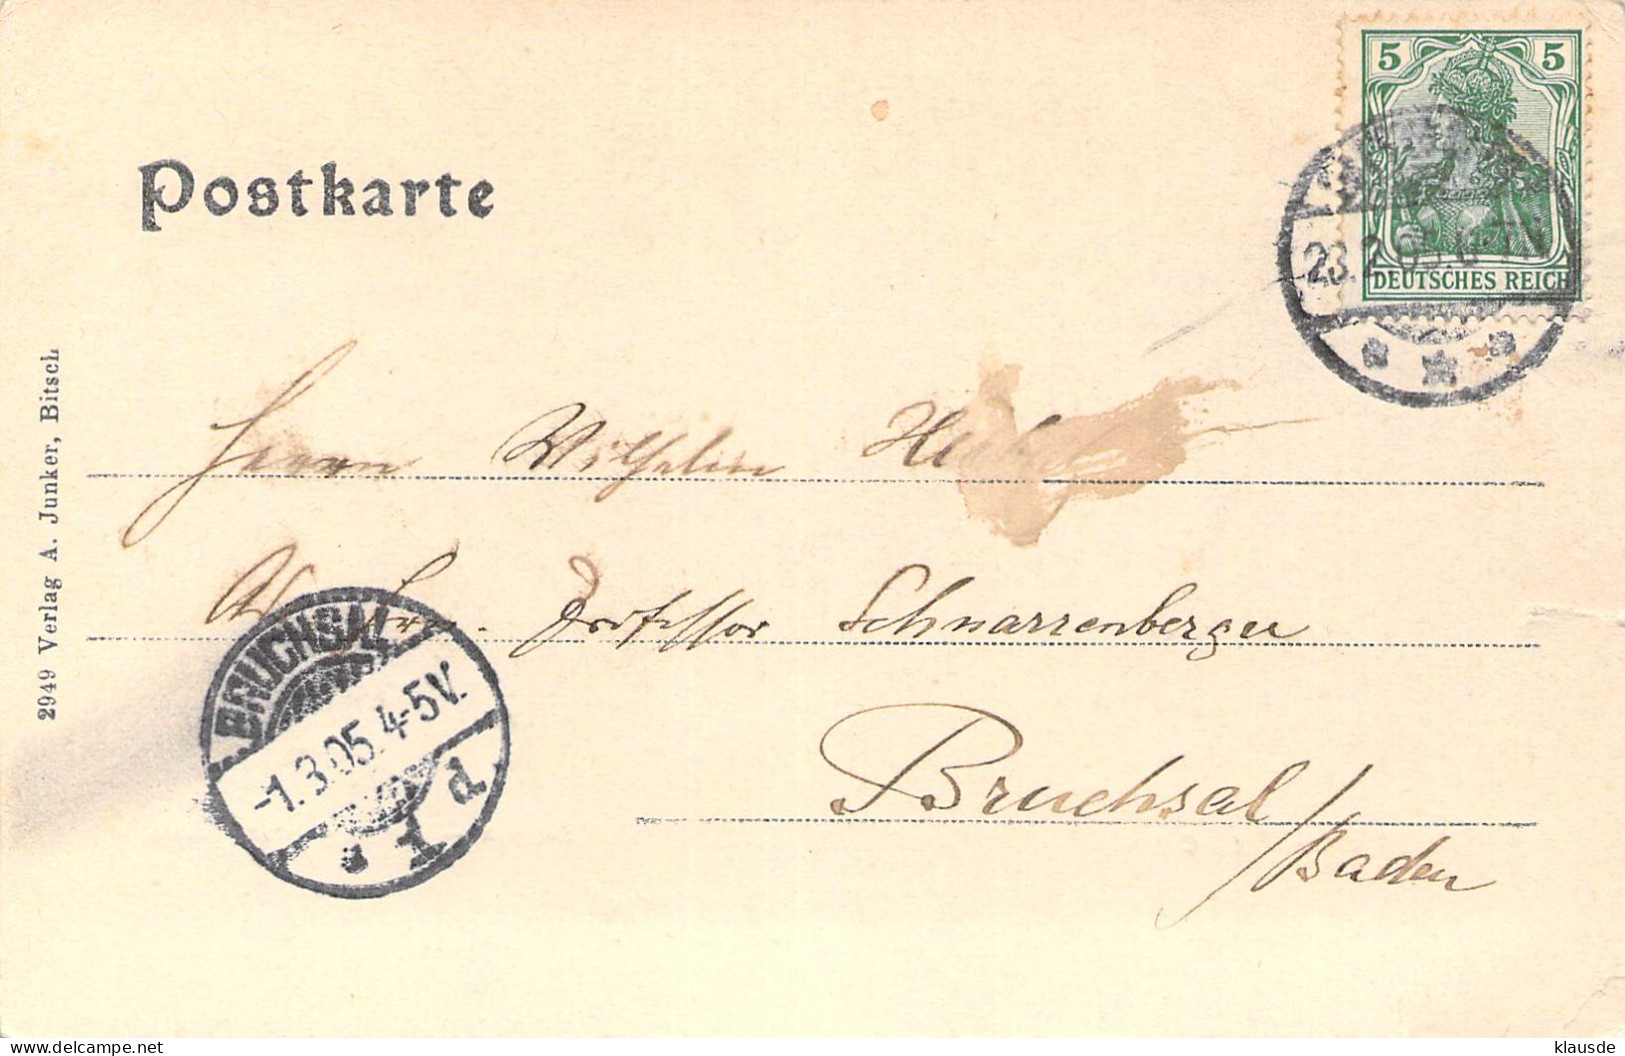 Postkarte
5 5
DEUTSCHES REICH
23.2.05. 6-7N
2949 Verlag A. Junker, Bitsch
Herrn Wilhelm
Professor Schnarrenberger
Bruchsal
/Baden
BRUCHSAL
-1.3.05.4-5V.
1 d
klausde